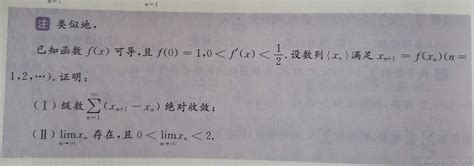 n=1
注 类似地,
已知函数 f(x) 可导,且 f(0) = 1,0 < f′(x) < 1/2. 设数列{x_n}满足 x_{n+1} = f(x_n)(n = 1,2,⋯). 证明:
(Ⅰ) 级数 ∑_{n=1}^{∞} (x_{n+1} − x_n) 绝对收敛;
(Ⅱ) lim_{n→∞} x_n 存在,且 0 < lim_{n→∞} x_n < 2.